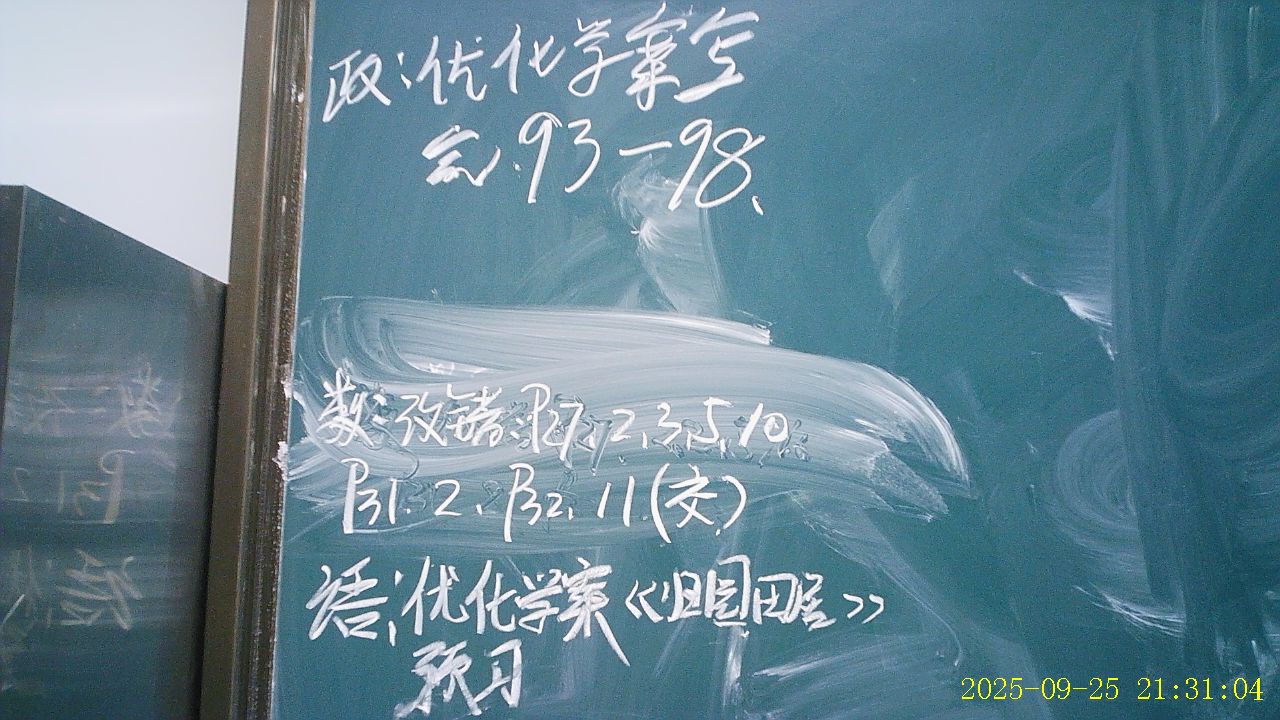 政:优化学案全
完.93—98、
数:改错:P27,2,3,5,10
P31.2、P32,11(交)
语:优化学案《归园田居》
预习
2025-09-25 21:31:04